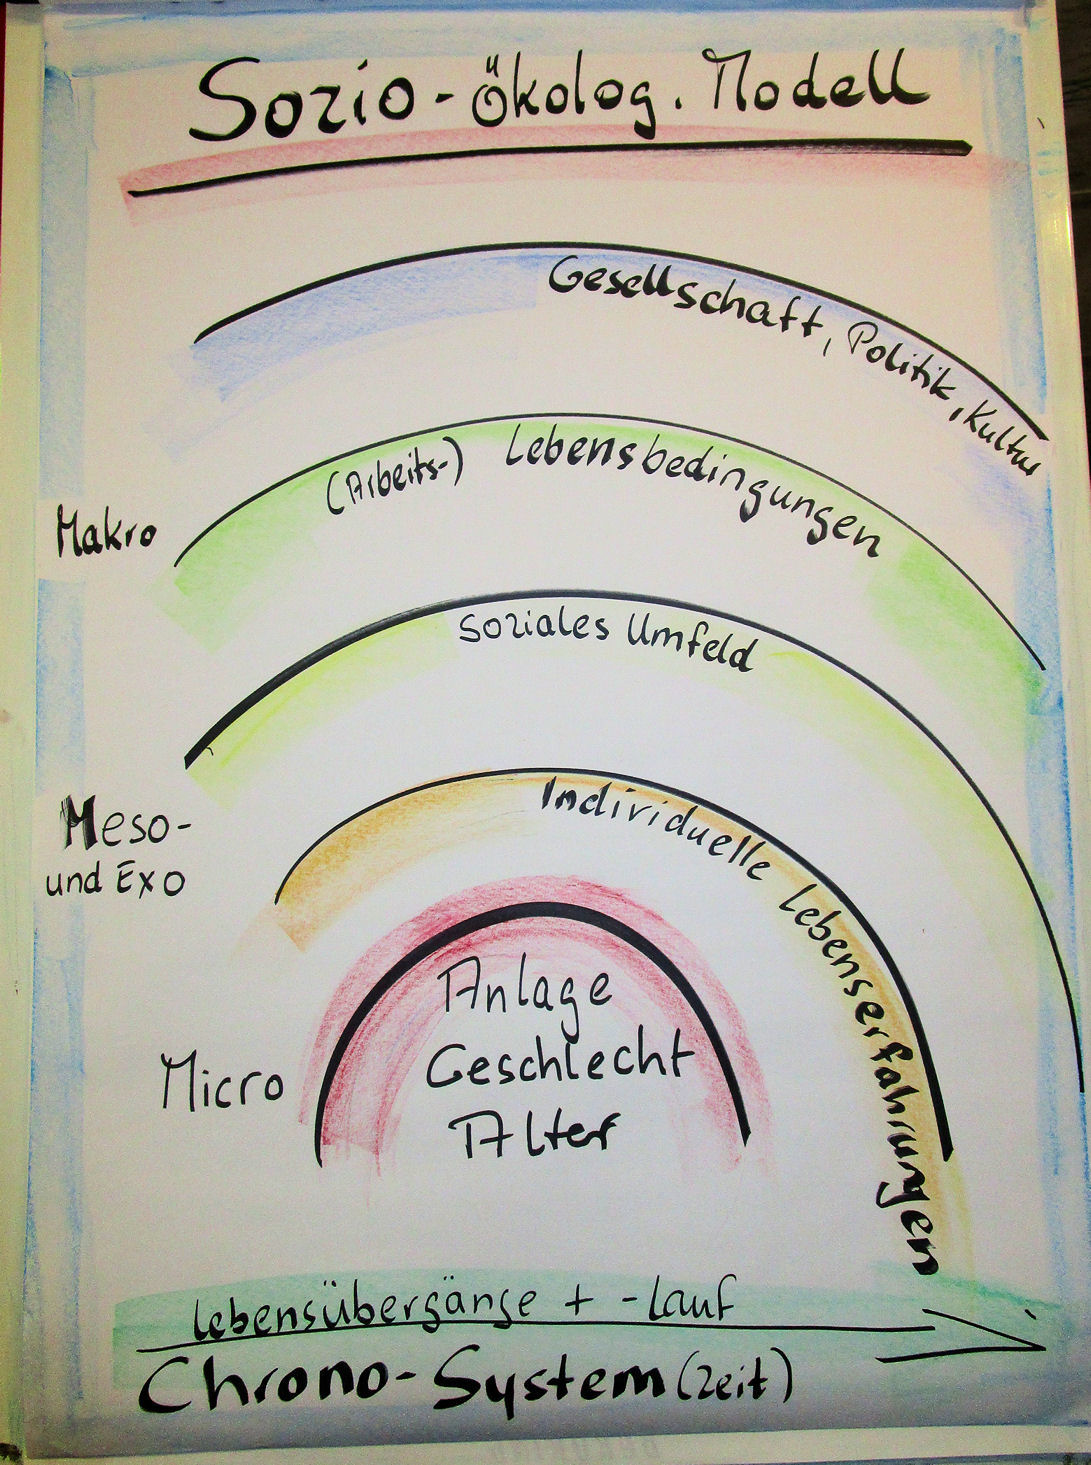 Sozio-ökolog. Modell
Gesellschaft, Politik, Kultur
(Arbeits-) Lebensbedingungen
Makro
Soziales Umfeld
Meso-
und Exo
Individuelle Lebenserfahrungen
Micro
Anlage
Geschlecht
Alter
Lebensübergänge + -lauf
Chrono-System (Zeit)